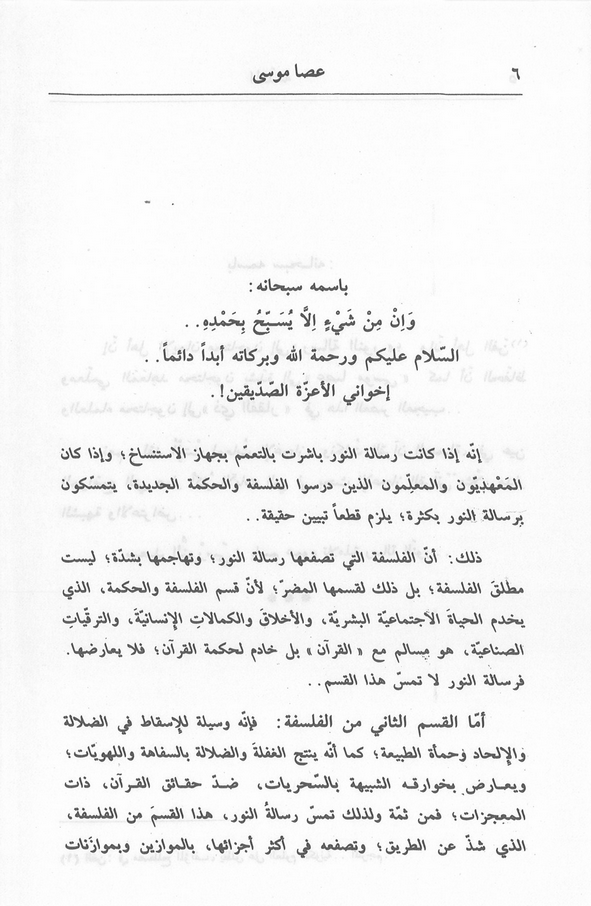 ٦
عصا موسى
باسمه سبحانه :
وَاِنْ مِنْ شَيْءٍ اِلَّا يُسَبِّحُ بِحَمْدِهِ . .
السّلام عليكم ورحمة الله وبركاته أبداً دائماً . .
إخواني الأعزّة الصّدّيقين ! .
إنّه إذا كانت رسالة النور باشرت بالتعمّم بجهاز الاستنساخ ؛ وإذا كان
المَعْهديّون والمعلّمون الذين درسوا الفلسفة والحكمة الجديدة ، يتمسّكون
برسالة النور بكثرة ؛ يلزم قطعاً تبيين حقيقة . .
ذلك : أنّ الفلسفة التي تصفعها رسالة النور ؛ وتهاجمها بشدّة ؛ ليست
مطلقَ الفلسفة ؛ بل ذلك لقسمها المضرّ ؛ لأنّ قسم الفلسفة والحكمة ، الذي
يخدم الحياةَ الاجتماعيّة البشريّة ، والأخلاقَ والكمالاتِ الإنسانيّةَ ، والترقّياتِ
الصناعيّة ، هو مسالم مع « القرآن » بل خادم لحكمة القرآن ؛ فلا يعارضها .
فرسالة النور لا تمسّ هذا القسم . .
أمّا القسم الثاني من الفلسفة : فإنّه وسيلة للإسقاط في الضلالة
والإلحاد وَحمأة الطبيعة ؛ كما أنّه ينتج الغفلةَ والضلالة بالسفاهة واللهويّات ؛
ويعـارض بخوارقـه الشبيهة بالسّحريات ، ضـدّ حقـائق القـرآن ، ذات
المعجزات ؛ فمن ثمّة ولذلك تمسّ رسالةُ النور ، هذا القسمَ من الفلسفة ،
الذي شذّ عن الطريق ؛ وتصفعه في أكثر أجزائها ، بالموازين وبموازَنات